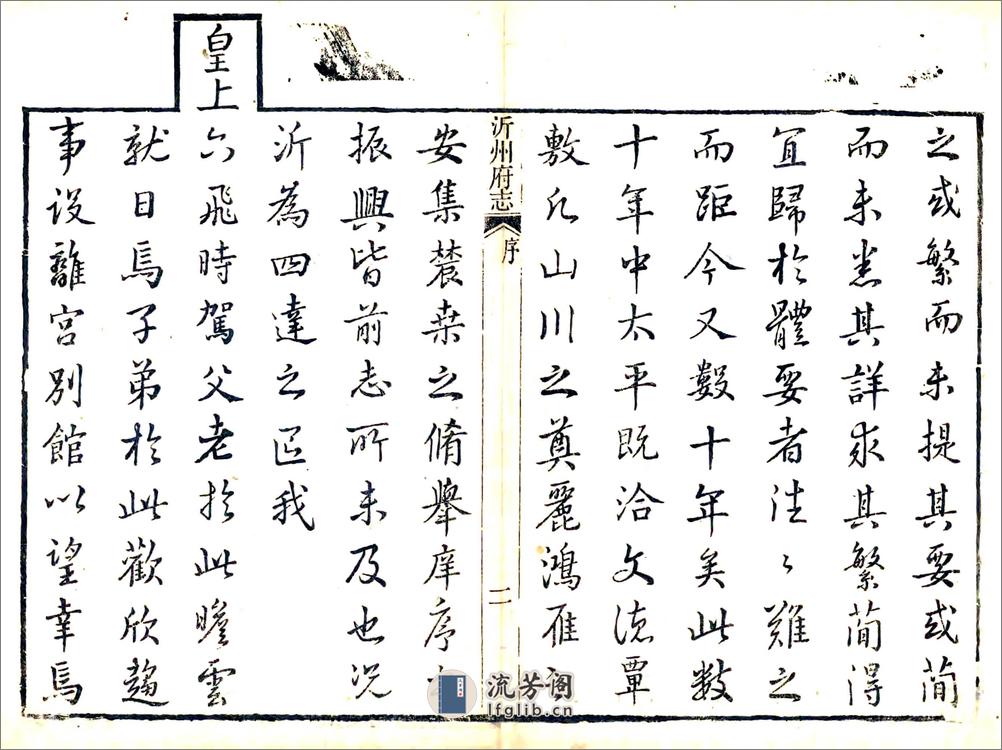 之或繁而未提其要或簡
而未悉其詳求其繁簡得
宜歸於體要者往〻難之
而距今又數十年矣此數
十年中太平既洽文德覃
敷凡山川之奠麗鴻雁之
沂州府志
序
二
安集農桑之脩舉庠序
振興皆前志所未及也况
沂為四達之區我
皇上
六飛時駕父老於此瞻雲
就日焉子弟於此歡欣趨
事設離宮別館以望幸焉
流芳阁
lfglib.cn